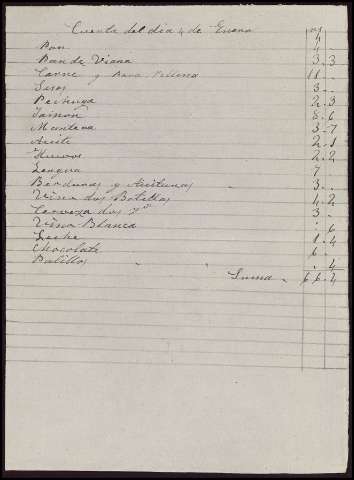 Cuenta del dia 4 de Enero
Pan 4
Pan de Viana 3.3
Carne y para rellena 11.
Sesos 3.
Pechuga 2.3
Jamon 8.6
Manteca 3.7
Aceite 2.1
Huevos 2.2
Lengua 7
Verduras y Aceitunas 3.
Vino dos Botellas 4.2
Cerveza dos 3.
Vino Blanco . 6
Leche 1.4
Chocolate 6.
Palillos . 4
Suma 66.2